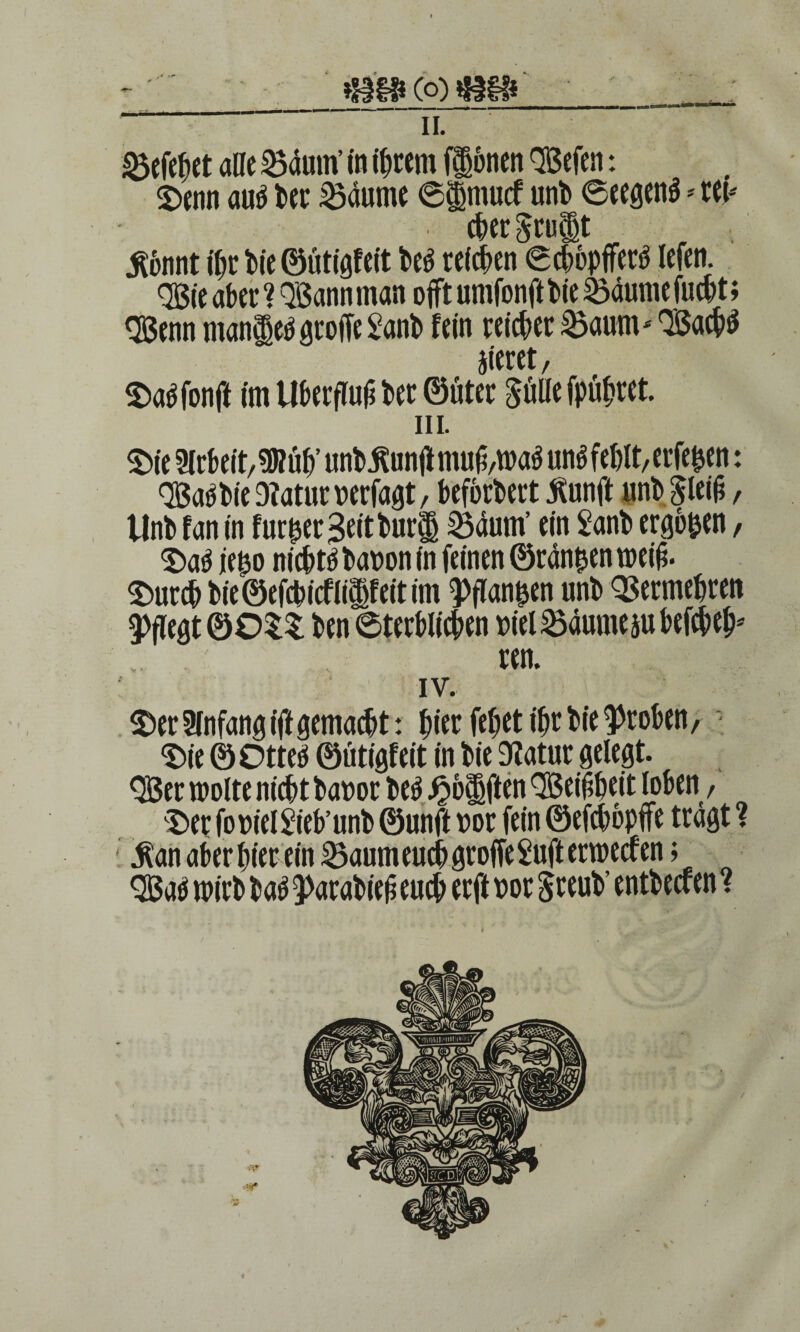 (o)
II.
Besehet alle Bäum' in ihrem schönen Wesen:
Denn aus der Bäume Schmuck und Seegens-rei-
cher Frucht
Könnt ihr die Gütigkeit des reichen Schöpffers lesen.
Wie aber? Wann man offt umsonst die Bäume sucht;
Wenn manches grosse Land kein reicher Baum-Wachs
zieret,
Das sonst im Uberfluß der Güter Fülle spühret.
III.
Die Arbeit, Müh' und Kunst muß, was uns fehlt, ersetzen:
Was die Natur versagt, befördert Kunst und Fleiß,
Und kan in kurtzer Zeit durch Bäum' ein Land ergötzen,
Das jetzo nichts davon in seinen Gräntzen weiß.
Durch die Geschicklichkeit im Pflantzen und Vermehren
Pflegt GOTT den Sterblichen viel Bäume zu bescheh-
ren.
IV.
Der Anfang ist gemacht: hier sehet ihr die Proben,
Die GOttes Gütigkeit in die Natur gelegt.
Wer wolte nicht davor des Höchsten Weißheit loben,
Der so viel Lieb' und Gunst vor sein Geschöpffe trägt?
Kan aber hier ein Baum euch grosse Lust erwecken;
Was wird das Paradieß euch erst vor Freud' entdecken?